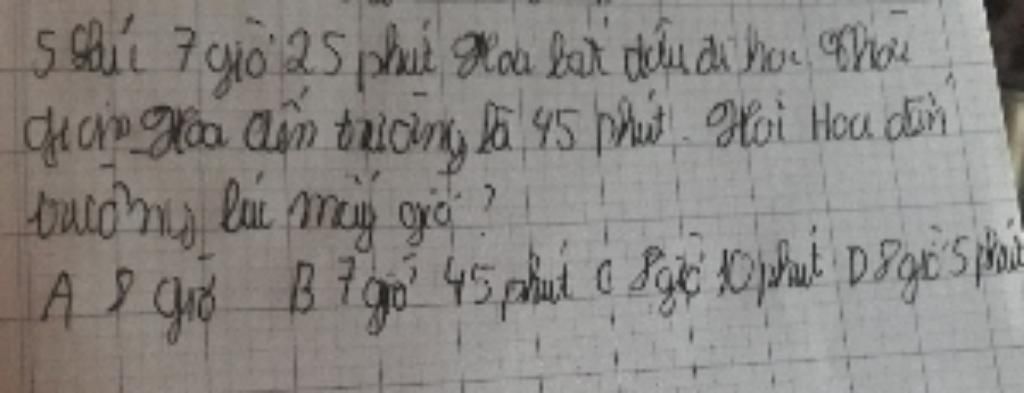 5 Lúc 7 giờ 25 phút Hoa bắt đầu đi học Thời
gian Hoa đến trường là 45 phút. Hỏi Hoa đến
trường lúc mấy giờ?
A 8 giờ B 7 giờ 45 phút C 8 giờ 10 phút D 8 giờ 5 phút